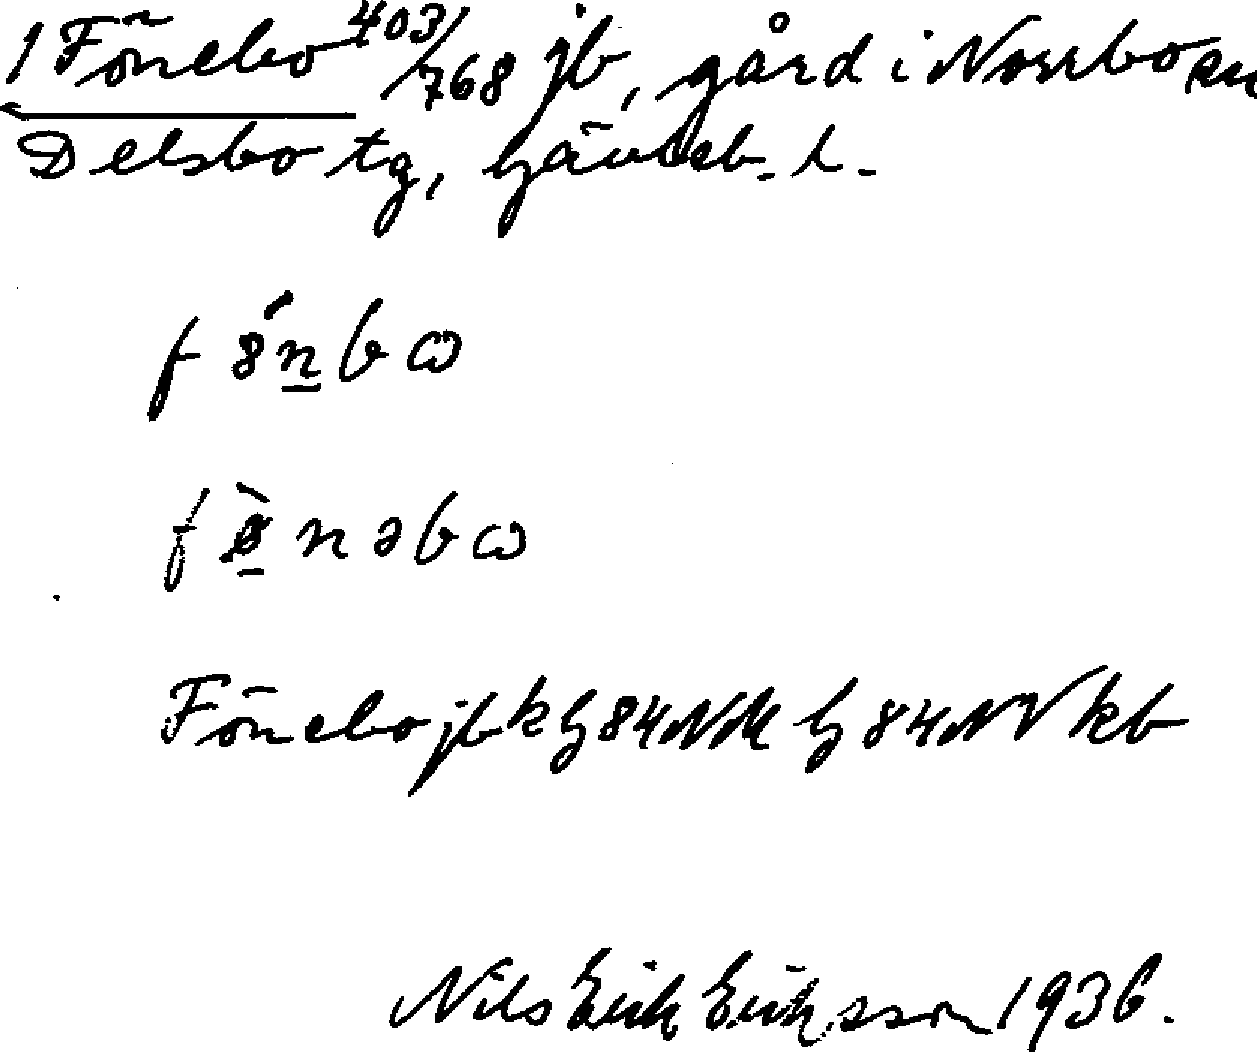 1 Fönebo 403/768 jb, gård i Norrbo sn
Delsbo tg, Gävleb. l.
f n b ω
f n ə b ω
Fönebo jb k G 84 NV kb
Nils Erik Eriksson 1936.